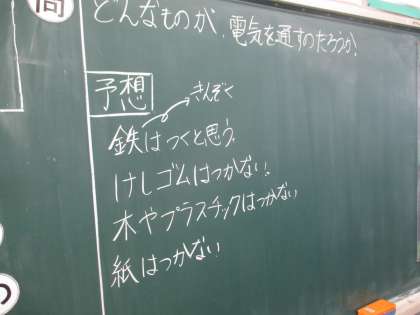 問
どんなものが、電気を通すのだろうか。
予想
きんぞく
鉄はつくと思う。
けしゴムはつかない。
木やプラスチックはつかない
紙はつかない